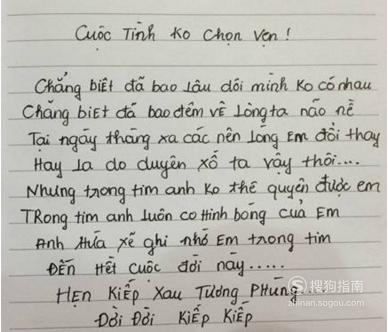 Cuộc Tình Ko Chọn Vẹn !
Chẳng biết đã bao lâu dôi mình Ko có nhau
Chẳng biết đã bao đêm về lòng ta não nề
Tại ngày tháng xa các nên lòng Em đổi thay
Hay la do duyên xố ta vậy thôi....
Nhưng trong tim anh Ko thể quyên được em
TRong tim anh luôn co Hinh bóng cuả Em
Anh Hứa xẽ ghi nhớ Em trong tim
ĐẾN HẾt Cuộc đời này.....
HẸN KIẾP Xau Tương PHÙNG
ĐỜI ĐỜI KIẾP KIẾP
搜狗指南
zhinan.sogou.com